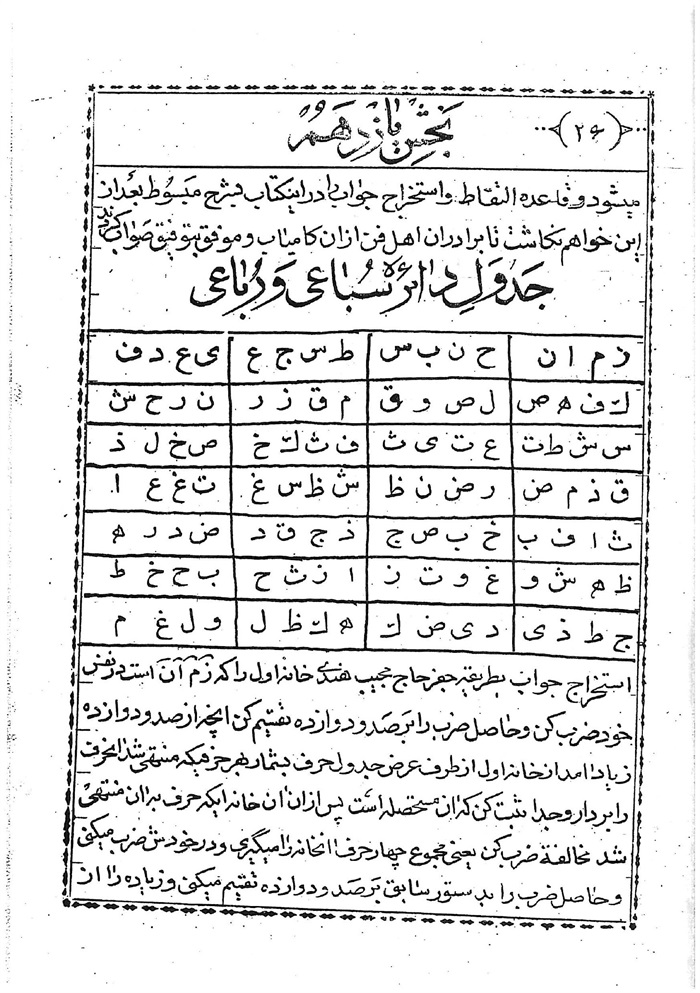 بخش یازدهم (۲۶)
میشود و قاعده التقاط و استخراج جواب را در اینکتاب بشرح مبسوط بعد از
این خواهم نگاشت تا برادران اهل فن از ان کامیاب و موفق بتوفیق صواب گردند
جدول دائره سباعی و رباعی
ز م ا ن ح ن ب س ط س ج ع ی ع د ف
ك ف ه ص ل ص و ق م ق ز ر ن ر ح ش
س ش ط ت ع ت ی ث ف ث ك خ ص خ ل ذ
ق ذ م ض ر ض ن ظ ش ظ س غ ت غ ع ا
ث ا ف ب خ ب ص ج ذ ج ق د ض د ر ه
ظ ه ش و غ و ت ز ا ز ث ح ب ح خ ط
ج ط ذ ی د ی ض ك ه ك ظ ل و ل غ م
استخراج جواب بطریقه جفر حاج نجیب هندی خانه اول را که زم آن است در نفس
خود ضرب کن و حاصل ضرب را بر صد و دوازده تقسیم کن انچه از صد و دوازده
زیاد امد از خانه اول از طرف عرض جدول حرف بشمار بهر حرفیکه منتهی شد انحرف
را بردار و جدا ثبت کن که ان مستحصله است پس از ان ان خانه ایکه حرف به ان منتهی
شد مخالفة ضرب کن یعنی مجموع چهار حرف انخانه را میگیری و در خودش ضرب میکنی
و حاصل ضرب را بدستور سابق بر صد و دوازده تقسیم میکنی و زیاده را از